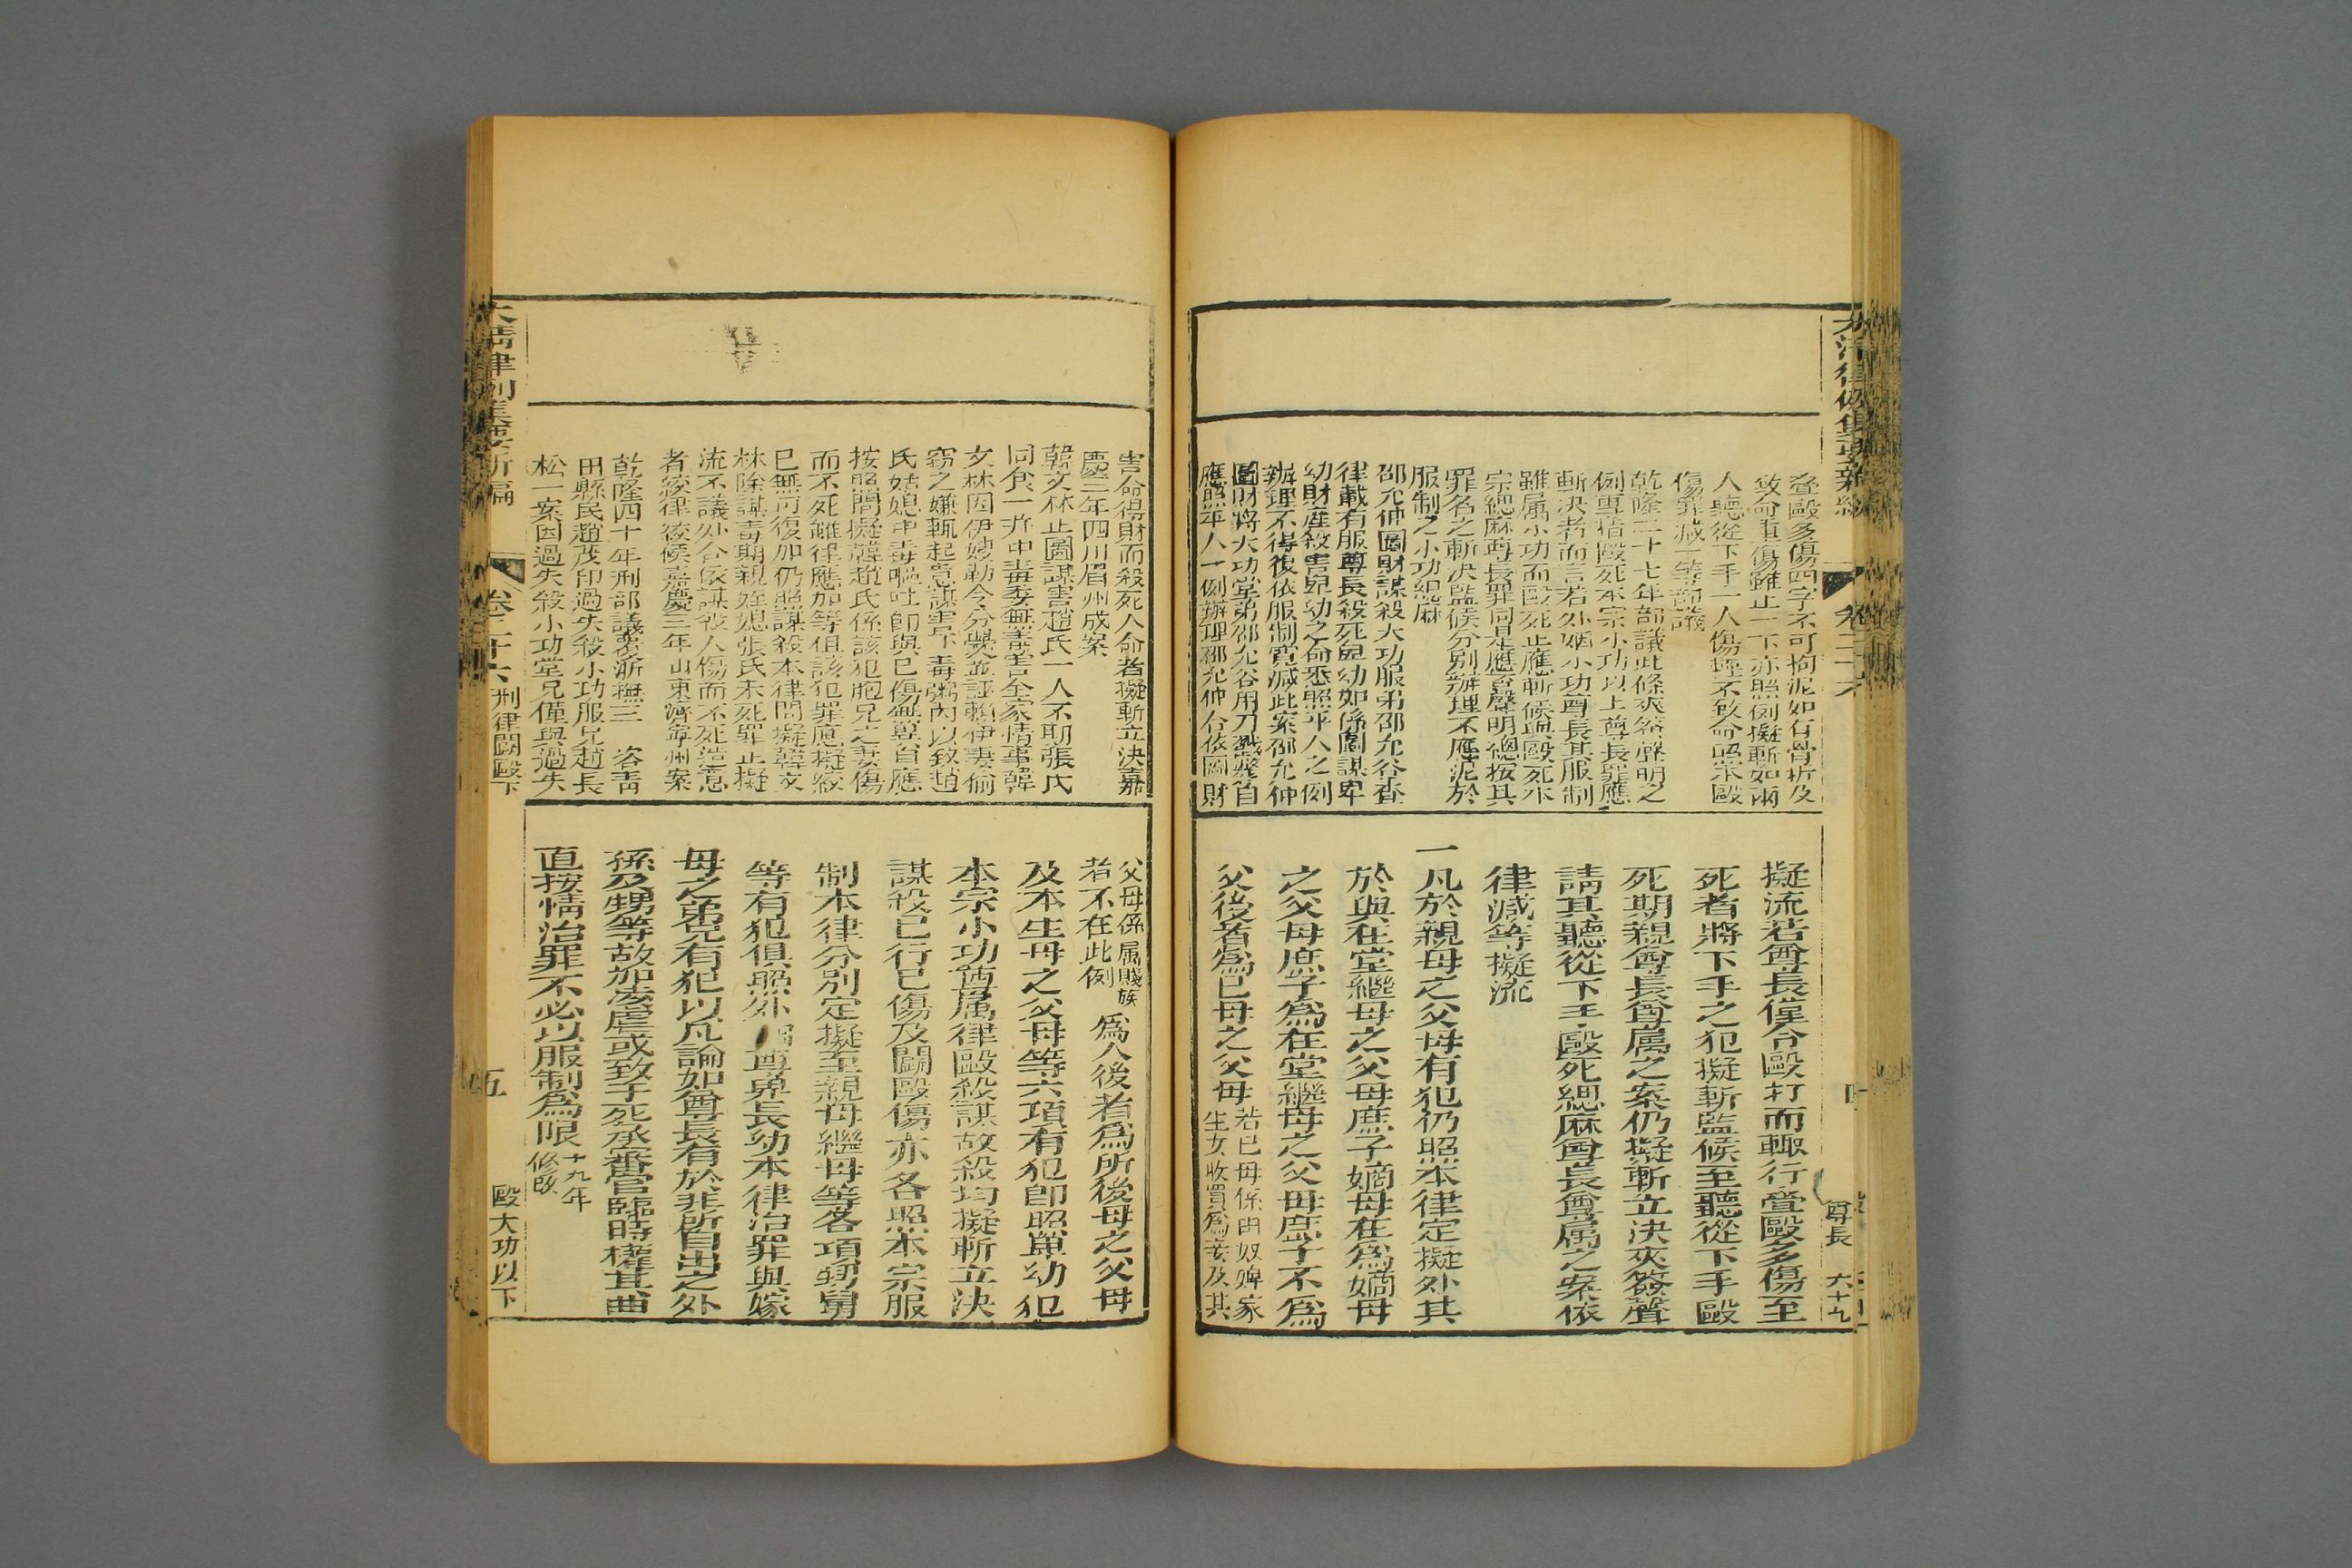 疊毆多傷四字不可拘泥如右骨折及
致命重傷雖止一下亦照例擬斬如兩
人聽從下手一人傷輕不致命照案毆
傷罪減一等部議
乾隆三十七年部議此條夾簽聲明之
例專指毆死本宗小功以上尊長罪應
斬決者而言若外姻小功尊長其服制
雖属小功而毆死止應斬候與毆死本
宗緦麻尊長罪同是應聲明總按其
罪名之斬決監候分別辦理不應泥於
服制之小功緦麻
邵允仲圖財謀殺大功服弟邵允谷查
律載有服尊長殺死卑幼如係圖謀卑
幼財產殺害卑幼之命悉照平人之例
辦理不得復依服制寬減此案邵允仲
圖財將大功堂弟邵允谷用刀戳斃自
應照平人一例辦理邵允仲合依圖財
擬流若尊長僅令毆打而輙行疊毆多傷至
死者將下手之犯擬斬監候至聽從下手毆
死期親尊長尊属之案仍擬斬立決夾簽聲
請其聽從下手毆死緦麻尊長尊属之案依
律減等擬流
一凡於親母之父母有犯仍照本律定擬外其
於與在堂繼母之父母庶子嫡母在爲嫡母
之父母庶子爲在堂繼母之父母庶子不爲
父後者爲己母之父母若已母係由奴婢家
生女收買爲妾及其
害命得財而殺死人命者擬斬立決嘉
慶三年四川眉州成案
韓文林止圖謀害趙氏一人不期張氏
同食一并中毒委無毒害全家情事韓
文林因伊嫂勒令分爨並誣賴伊妻偷
竊之嫌輒起意謀害下毒粥內以致趙
氏姑媳中毒嘔吐即與已傷無異自應
按照問擬韓趙氏係該犯胞兄之妻傷
而不死雖律應加等但該犯罪應擬絞
已無可復加仍照謀殺本律問擬韓文
林除謀毒期親姪媳張氏未死罪止擬
流不議外合依謀殺人傷而不死造意
者絞律絞候嘉慶三年山東濟寧州案
乾隆四十年刑部議覆浙撫三 咨青
田縣民趙茂印過失殺小功服兄趙長
松一案因過失殺小功堂兄僅與過失
父母係属賤族
者不在此例爲人後者爲所後母之父母
及本生母之父母等六項有犯即照卑幼犯
本宗小功尊属律毆殺謀故殺均擬斬立決
謀殺已行已傷及鬭毆傷亦各照本宗服
制本律分別定擬至親母繼母等各項甥舅
等有犯俱照外姻尊卑長幼本律治罪與嫁
母之弟兄有犯以凡論如尊長有於非所自出之外
孫及甥等故加凌虐或致于死承審官臨時權其曲
直按情治罪不必以服制爲限十九年
修改
大清律例集要新編
卷二十六
刑律鬭毆下
五
毆大功以下
尊長
六十九